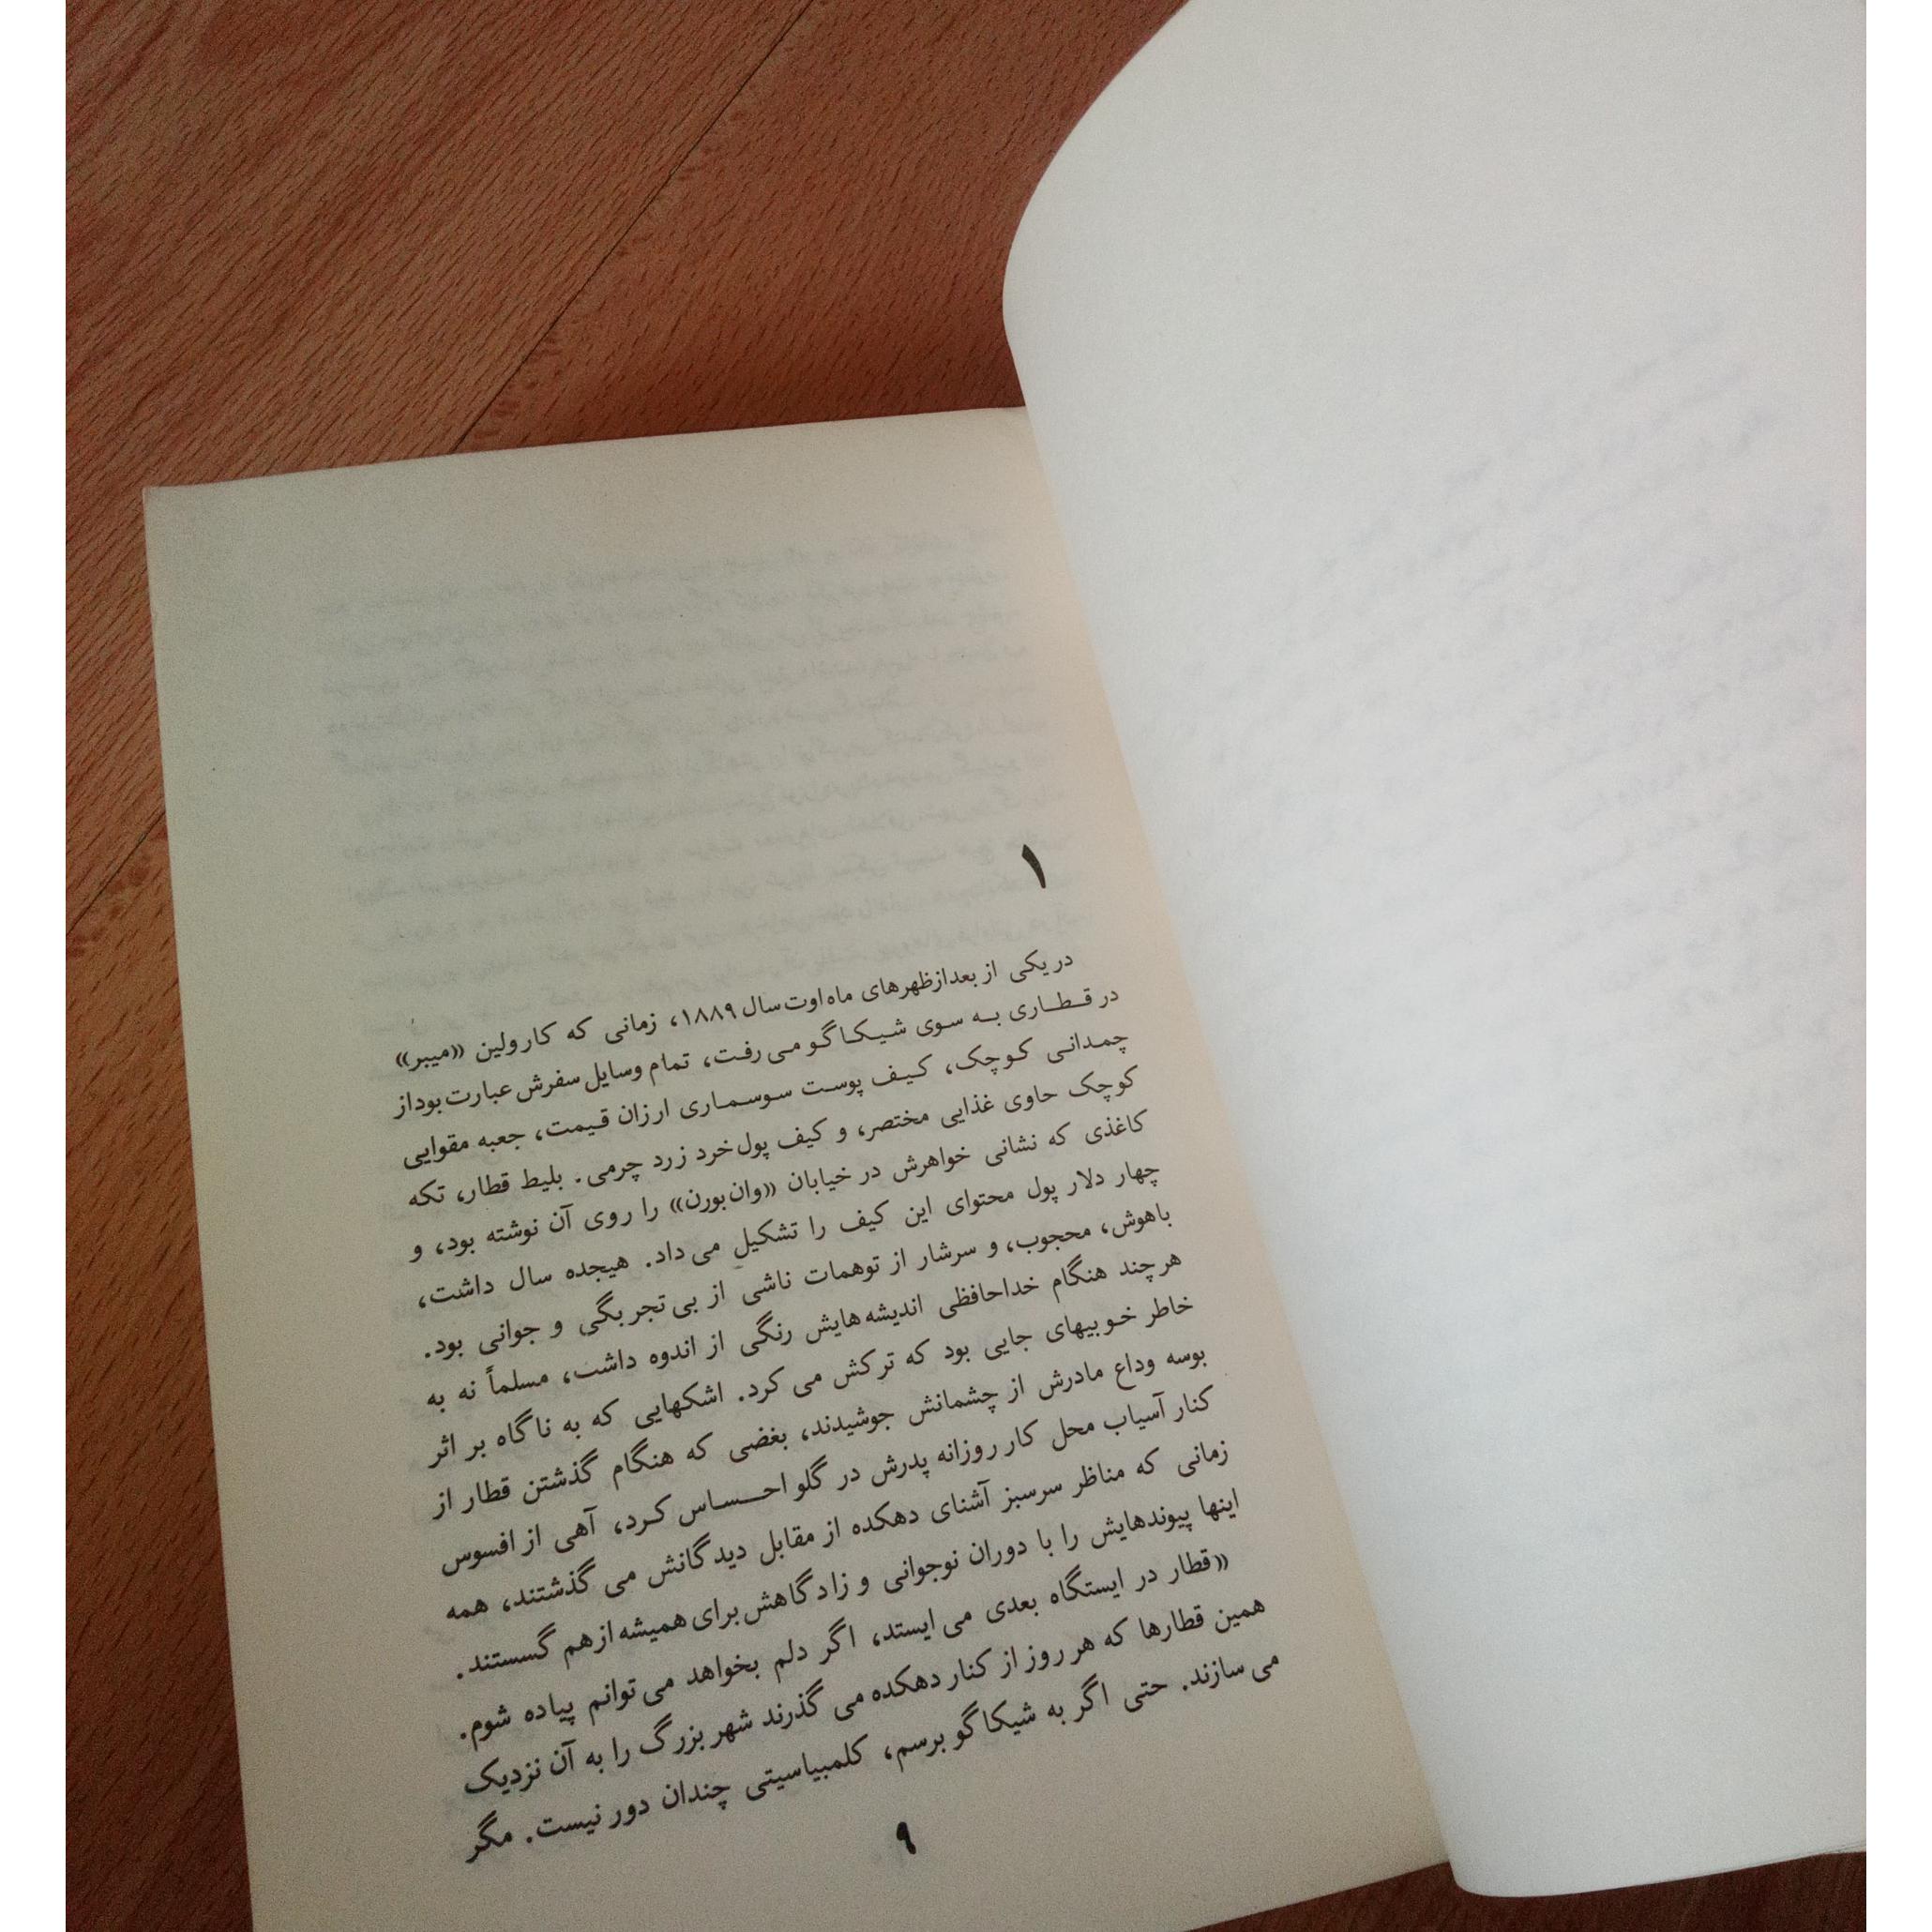 ۱
در یکی از بعدازظهرهای ماه اوت سال ۱۸۸۹، زمانی که کارولین «میبر»
در قطاری به سوی شیکاگو می‌رفت، تمام وسایل سفرش عبارت بود از
چمدانی کوچک، کیف پوست سوسماری ارزان قیمت، جعبه مقوایی
کوچک حاوی غذایی مختصر، و کیف پول خرد زرد چرمی. بلیط قطار، تکه
کاغذی که نشانی خواهرش در خیابان «وان‌بورن» را روی آن نوشته بود، و
چهار دلار پول محتوای این کیف را تشکیل می‌داد. هیجده سال داشت،
باهوش، محجوب، و سرشار از توهمات ناشی از بی‌تجربگی و جوانی بود.
هرچند هنگام خداحافظی اندیشه‌هایش رنگی از اندوه داشت، مسلماً نه به
خاطر خوبیهای جایی بود که ترکش می‌کرد. اشکهایی که به ناگاه بر اثر
بوسه وداع مادرش از چشمانش جوشیدند، بغضی که هنگام گذشتن قطار از
کنار آسیاب محل کار روزانه پدرش در گلو احساس کرد، آهی از افسوس
زمانی که مناظر سرسبز آشنای دهکده از مقابل دیدگانش می‌گذشتند، همه
اینها پیوندهایش را با دوران نوجوانی و زادگاهش برای همیشه ازهم گسستند.
«قطار در ایستگاه بعدی می‌ایستد، اگر دلم بخواهد می‌توانم پیاده شوم.
همین قطارها که هر روز از کنار دهکده می‌گذرند شهر بزرگ را به آن نزدیک
می‌سازند. حتی اگر به شیکاگو برسم، کلمبیاسیتی چندان دور نیست. مگر
۹